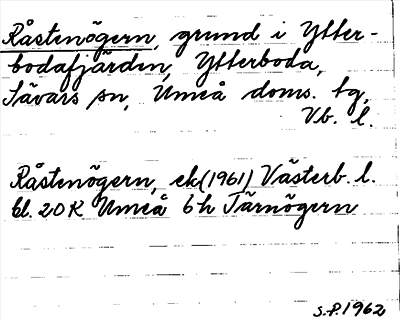 Råstenögern, grund i Ytter-
bodafjärden, Ytterboda,
Sävars sn, Umeå doms. tg,
Vb. l.
Råstenögern, ek (1961) Västerb. l.
bl. 20K Umeå 6h Tärnögern
S.P. 1962